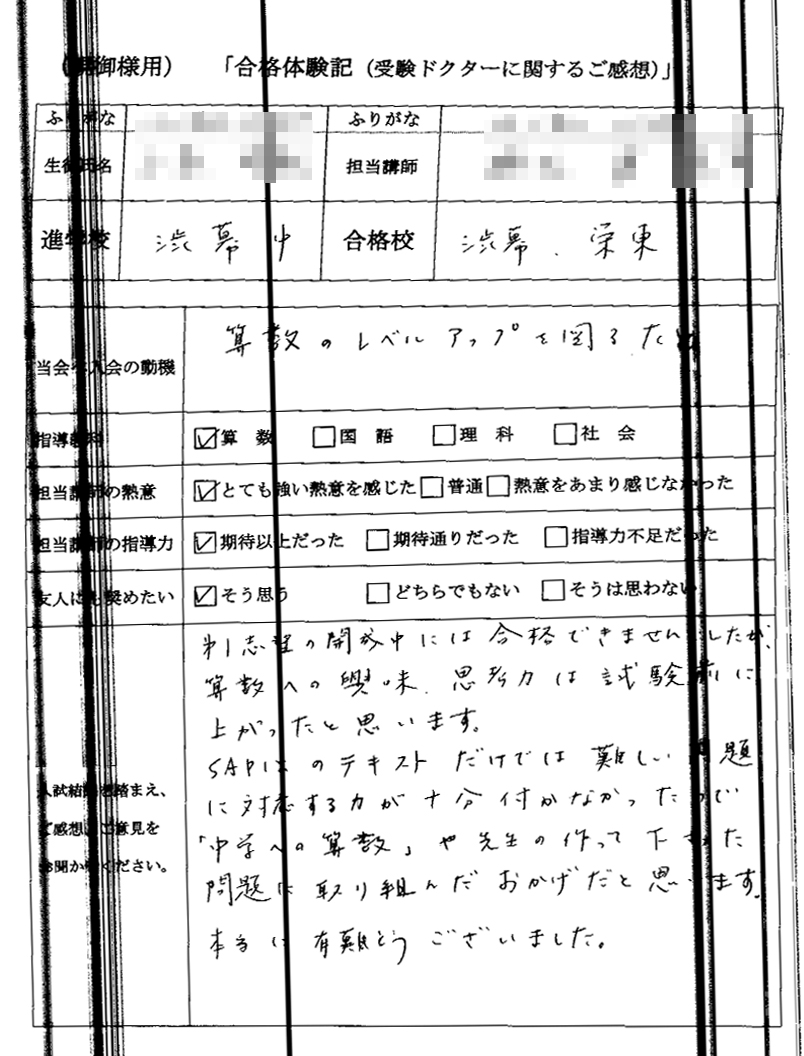 御様用） 「合格体験記（受験ドクターに関するご感想）」
ふりがな ふりがな
生徒氏名 担当講師
進学校 渋幕中 合格校 渋幕、栄東
当会へ入会の動機 算数のレベルアップを図るため
指導教科 ☑算 数 □国 語 □理 科 □社 会
担当講師の熱意 ☑とても強い熱意を感じた □普通 □熱意をあまり感じなかった
担当講師の指導力 ☑期待以上だった □期待通りだった □指導力不足だった
友人にも奨めたい ☑そう思う □どちらでもない □そうは思わない
第1志望の開成中には合格できませんでしたが、
算数への興味、思考力は試験前に
上がったと思います。
SAPIXのテキストだけでは難しい問題
に対応する力が十分付かなかったので
「中学への算数」や先生の作って下さった
問題に取り組んだおかげだと思います。
本当に有難うございました。
入試結果を踏まえ、
ご感想、ご意見を
お聞かせください。